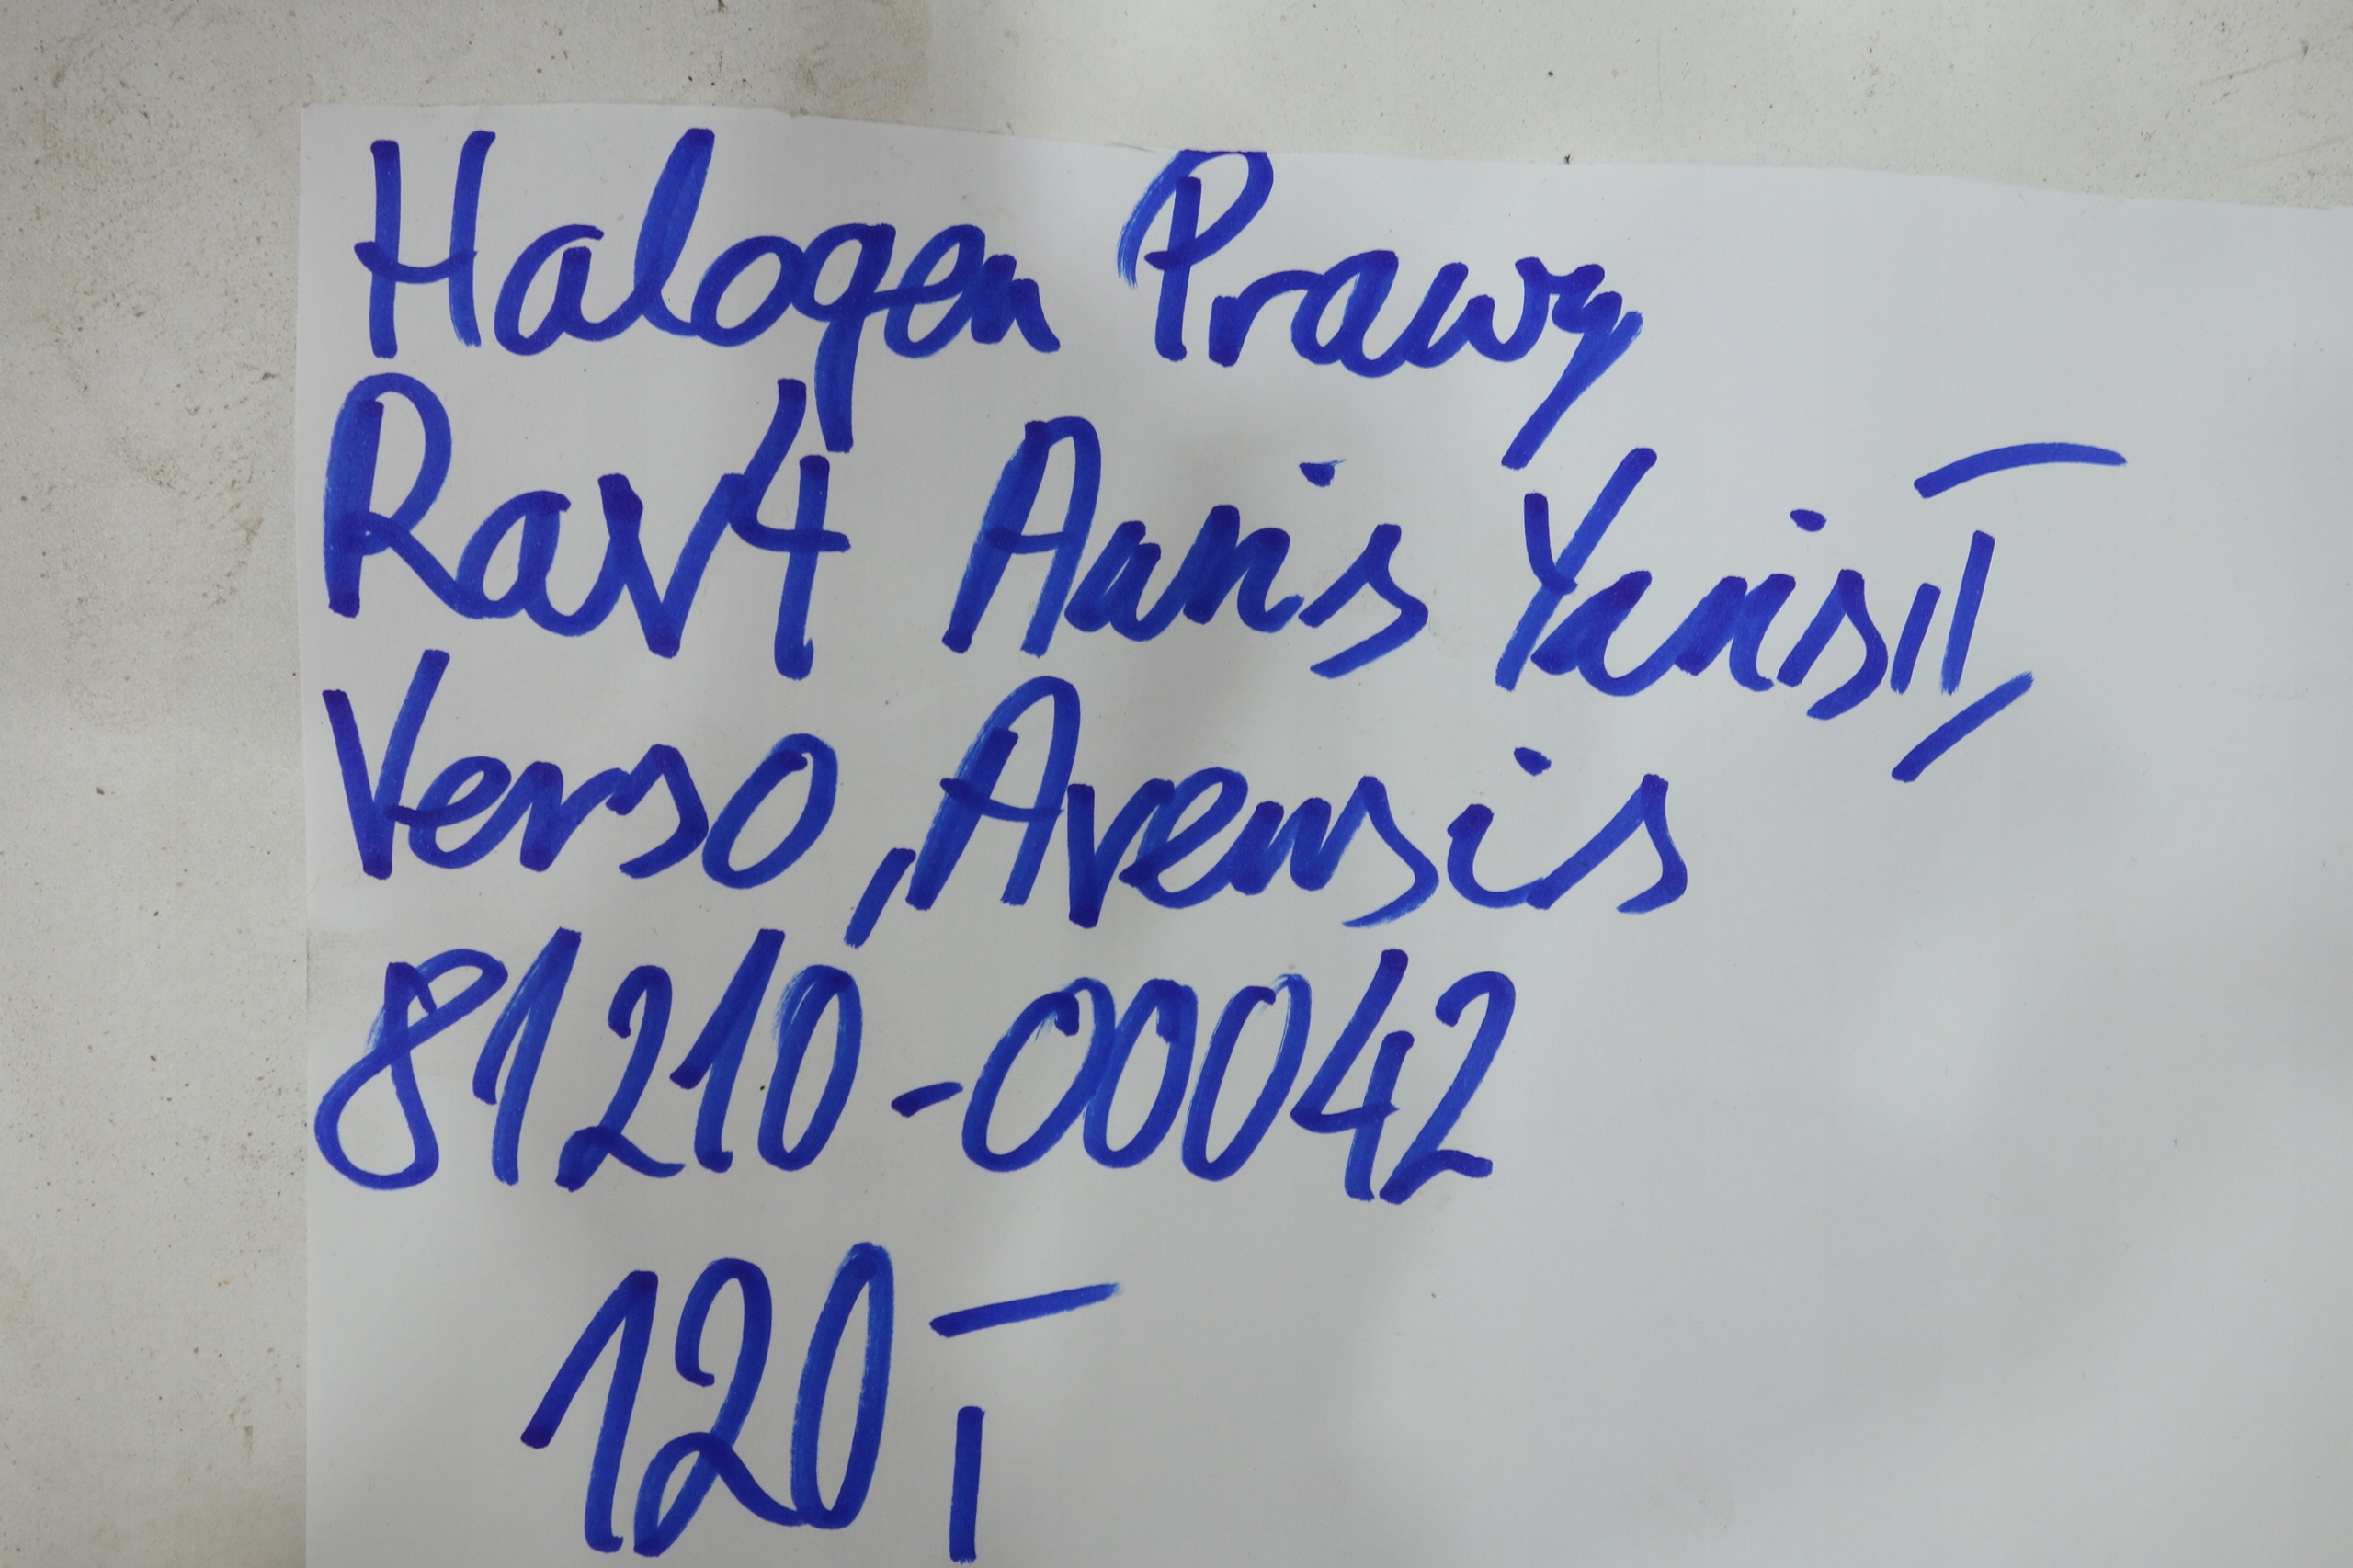 Halogen Prawy
Rav4 Auris Yaris II,
Verso, Avensis
81210-00042
120,-